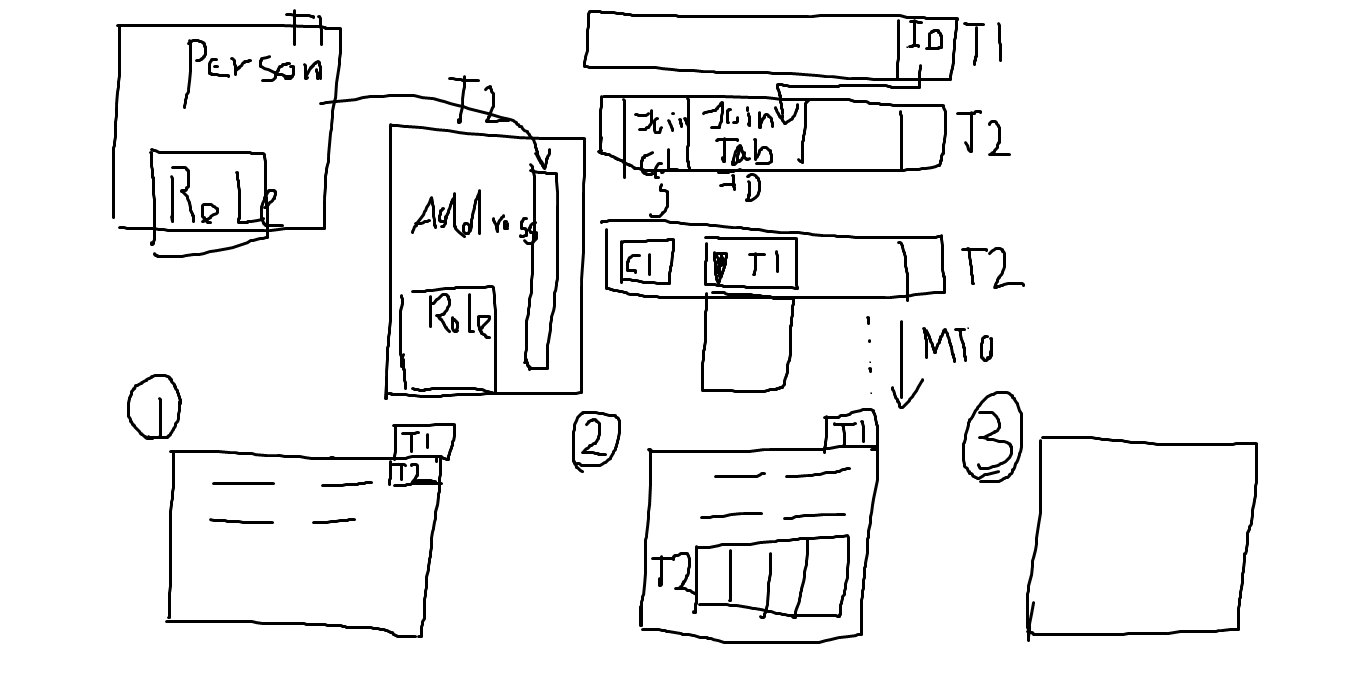 T1
Person
Role
T2
Address
Role
ID T1
Join Join T2
Col Tab
ID
C1 T1 T2
MTO
1
T1
T2
2
T1
T2
3